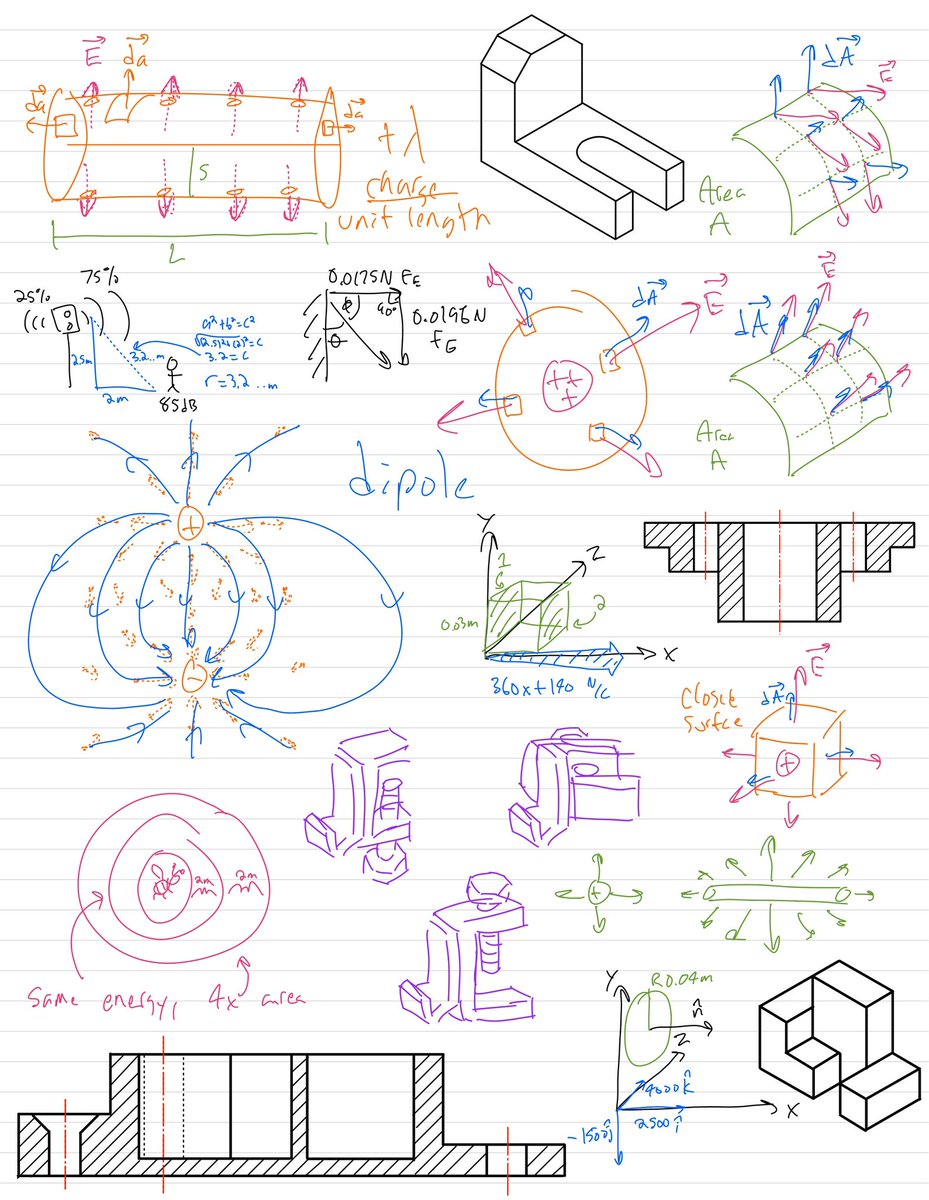 E
da
da
da
+ λ
charge
unit length
s
L
dA
E
Area
A
25%
75%
2.5m
3.2...m
2m
85dB
a²+b²=c²
3.2=c
r=3.2...m
0.0175N FE
θ
90°
0.0196N
FE
θ
dA
E
++
+
E
dA
Area
A
dipole
+
-
Y
Z
X
1
6
2
0.03m
360x+140 N/C
Closed
Surfce
dA
E
+
2m
2m
same energy, 4x area
+
d
Y
R0.04m
n̂
Z
4000k̂
X
2500î
-1500ĵ